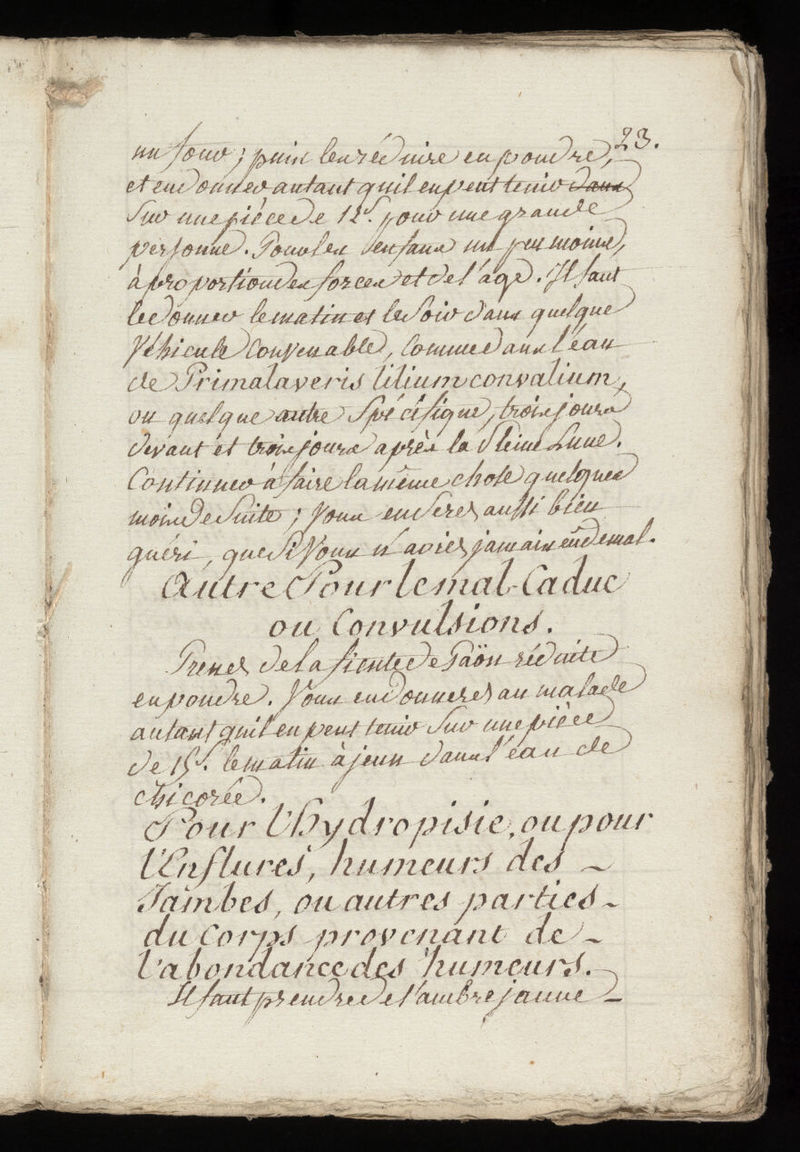 23.
un four; puis les réduire en poudre,
et en donner autant qu'il en peut tenir dans
sur une pièce de 12s. pour une grande
personne. Pour les enfans un peu moins,
à proportion des forces et de l'age. Il faut
le donner le matin et le soir dans quelque
Véhicule Convenable, Comme dans l'eau
de Primalaveris lilium convalium,
ou quelque autre Spécifique, trois jours
devant et trois jours après la Pleine Lune.
Continuer à faire la même chose quelques
mois de Suite; Vous en serez aussi bien
guéri, que si Vous n'aviez jamais eû de mal.
Autre Pour le mal-Caduc
ou Convulsions.
Prenez de la fiente de Paön réduite
en poudre. Vous en donnerez au malade
autant qu'il en peut tenir Sur une pièce
de 15s. le matin à jeun dans l'eau de
chicorée.
Pour l'hydropisie, ou pour
l'Enflures, humeurs des -
Jambes, ou autres parties -
du Corps provenant de -
l'abondance des humeurs.
Il faut prendre de l'ambre jaune -